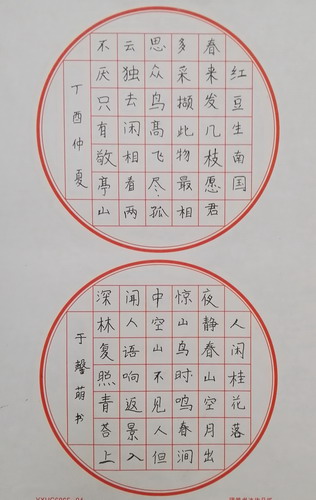 红豆生南国
春来发几枝愿君
多采撷此物最相
思众鸟高飞尽孤
云独去闲相看两
不厌只有敬亭山
丁酉仲夏
人闲桂花落
夜静春山空月出
惊山鸟时鸣春涧
中空山不见人但
闻人语响返景入
深林复照青苔上
于馨萌书